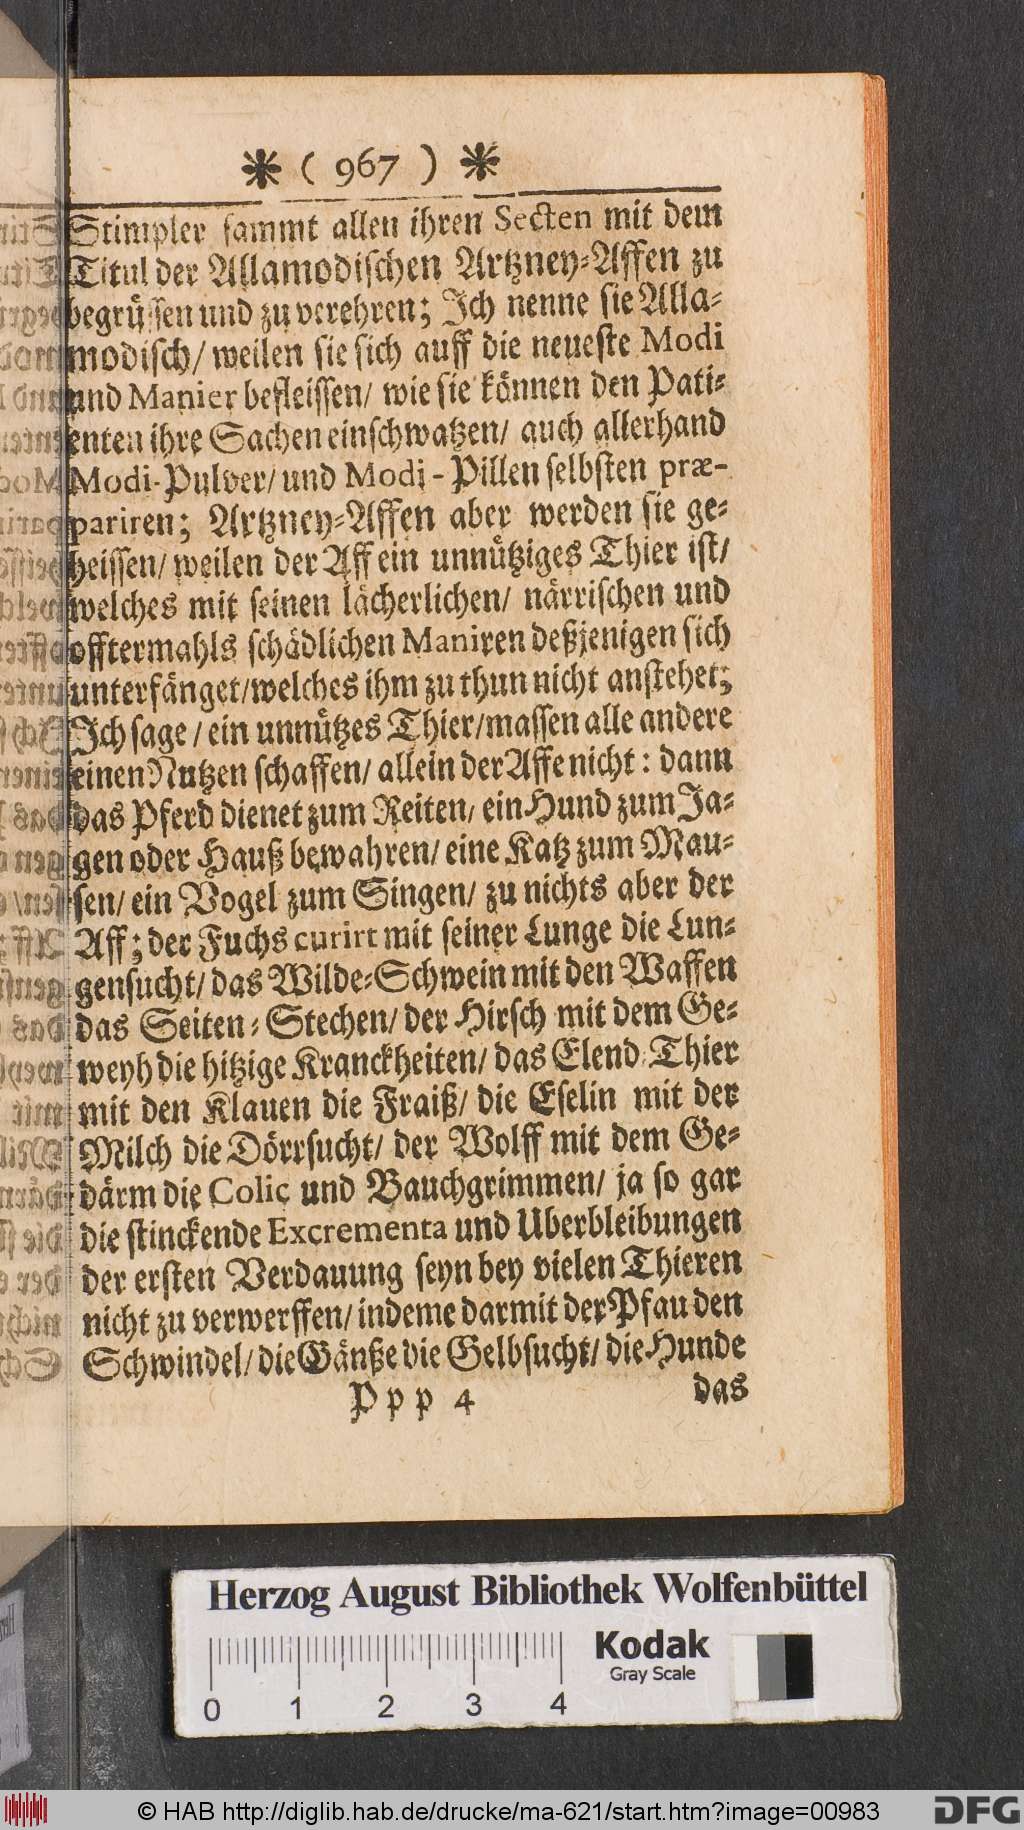 * ( 967 ) *
Stimpler sammt allen ihren Secten mit dem
Titul der Allamodischen Artzney-Affen zu
begrüssen und zu verehren; Ich nenne sie Alla-
modisch/ weilen sie sich auff die neueste Modi
und Manier befleissen/ wie sie können den Pati-
enten ihre Sachen einschwatzen/ auch allerhand
Modi-Pulver/ und Modi-Pillen selbsten præ-
pariren; Artzney-Affen aber werden sie ge-
heissen/ weilen der Aff ein unnütziges Thier ist/
welches mit seinen lächerlichen/ närrischen und
offtermahls schädlichen Maniren deßjenigen sich
unterfänget/ welches ihm zu thun nicht anstehet;
Ich sage/ ein unnützes Thier/ massen alle andere
einen Nutzen schaffen/ allein der Affe nicht: dann
das Pferd dienet zum Reiten/ ein Hund zum Ja-
gen oder Hauß bewahren/ eine Katz zum Mau-
sen/ ein Vogel zum Singen/ zu nichts aber der
Aff; der Fuchs curirt mit seiner Lunge die Lun-
gensucht/ das Wilde-Schwein mit den Waffen
das Seiten-Stechen/ der Hirsch mit dem Ge-
weyh die hitzige Kranckheiten/ das Elend-Thier
mit den Klauen die Fraiß/ die Eselin mit der
Milch die Dörrsucht/ der Wolff mit dem Ge-
därm die Colic und Bauchgrimmen/ ja so gar
die stinckende Excrementa und Uberbleibungen
der ersten Verdauung seyn bey vielen Thieren
nicht zu verwerffen/ indeme darmit der Pfau den
Schwindel/ die Gänße die Gelbsucht/ die Hunde
Ppp 4 das
Herzog August Bibliothek Wolfenbüttel
Kodak
Gray Scale
0 1 2 3 4
© HAB http://diglib.hab.de/drucke/ma-621/start.htm?image=00983
DFG